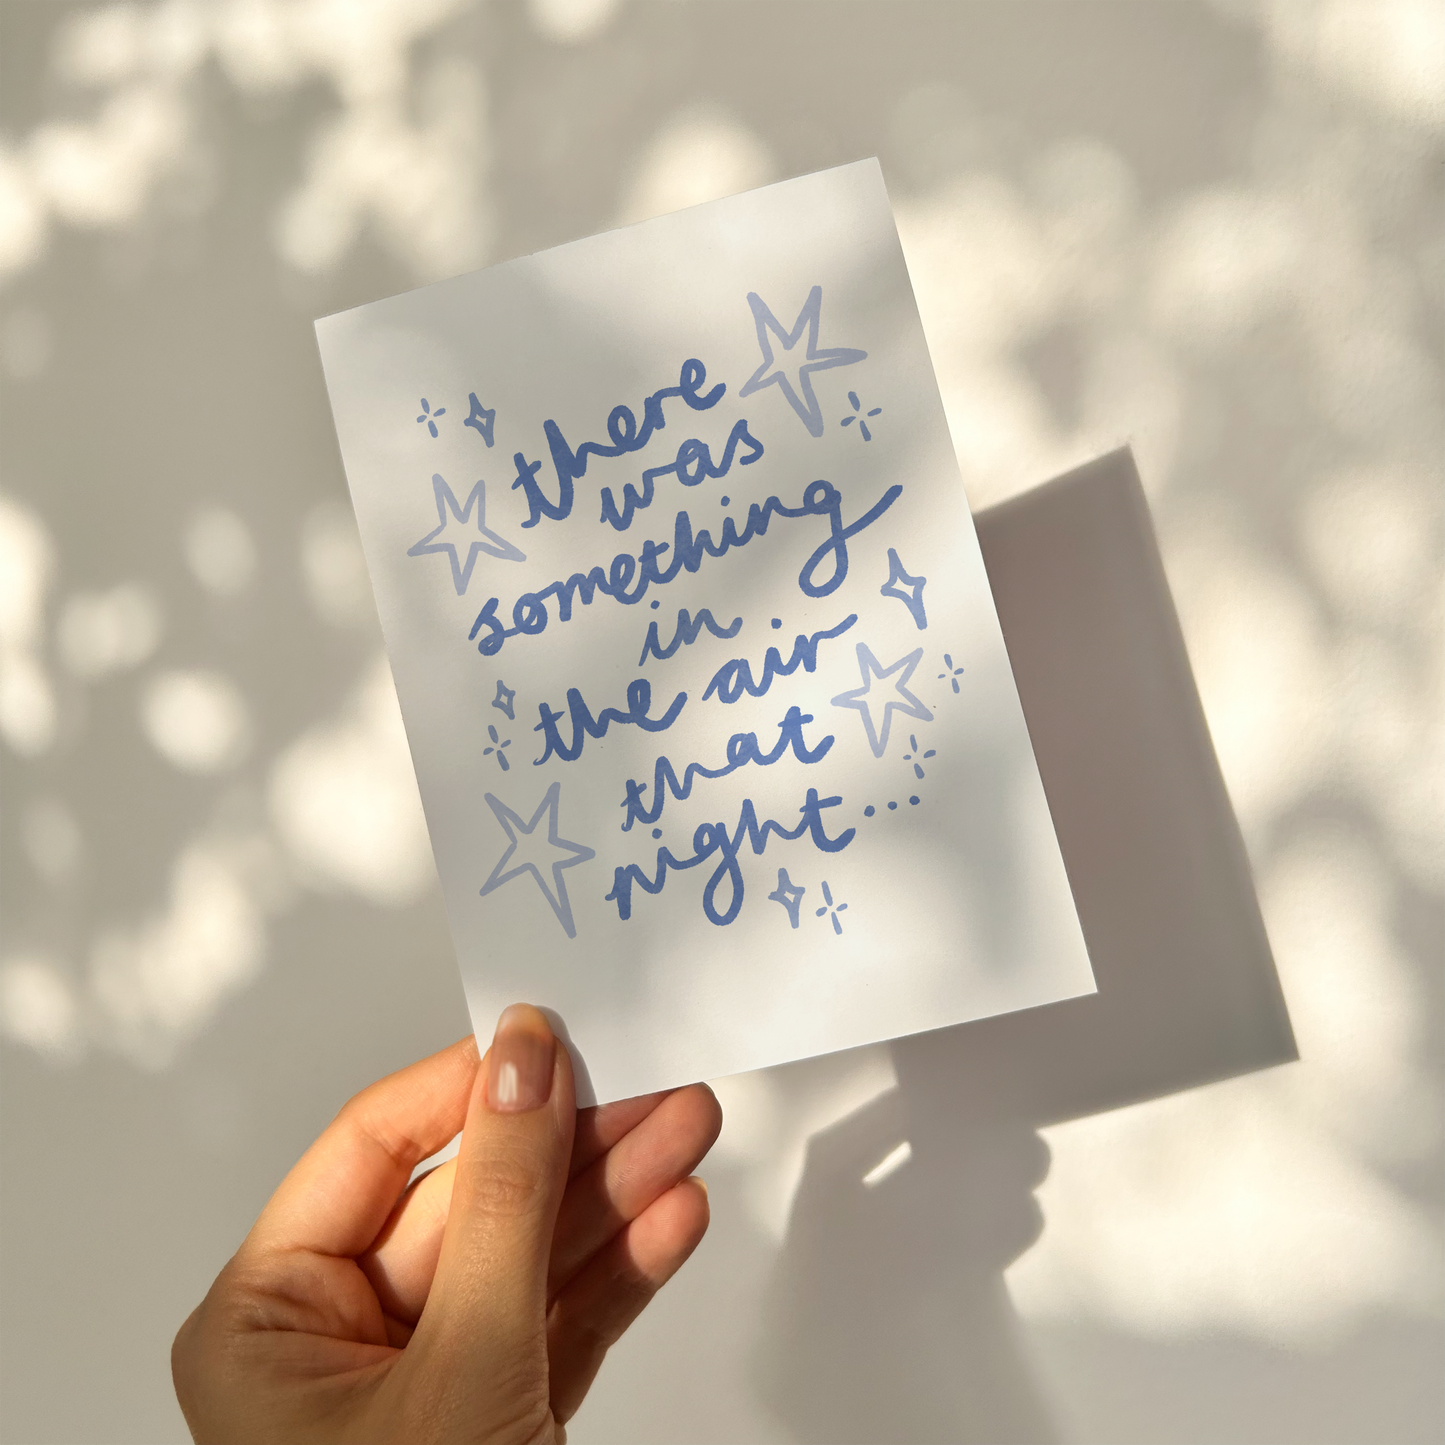 there
was
something
in
the air
that
night...